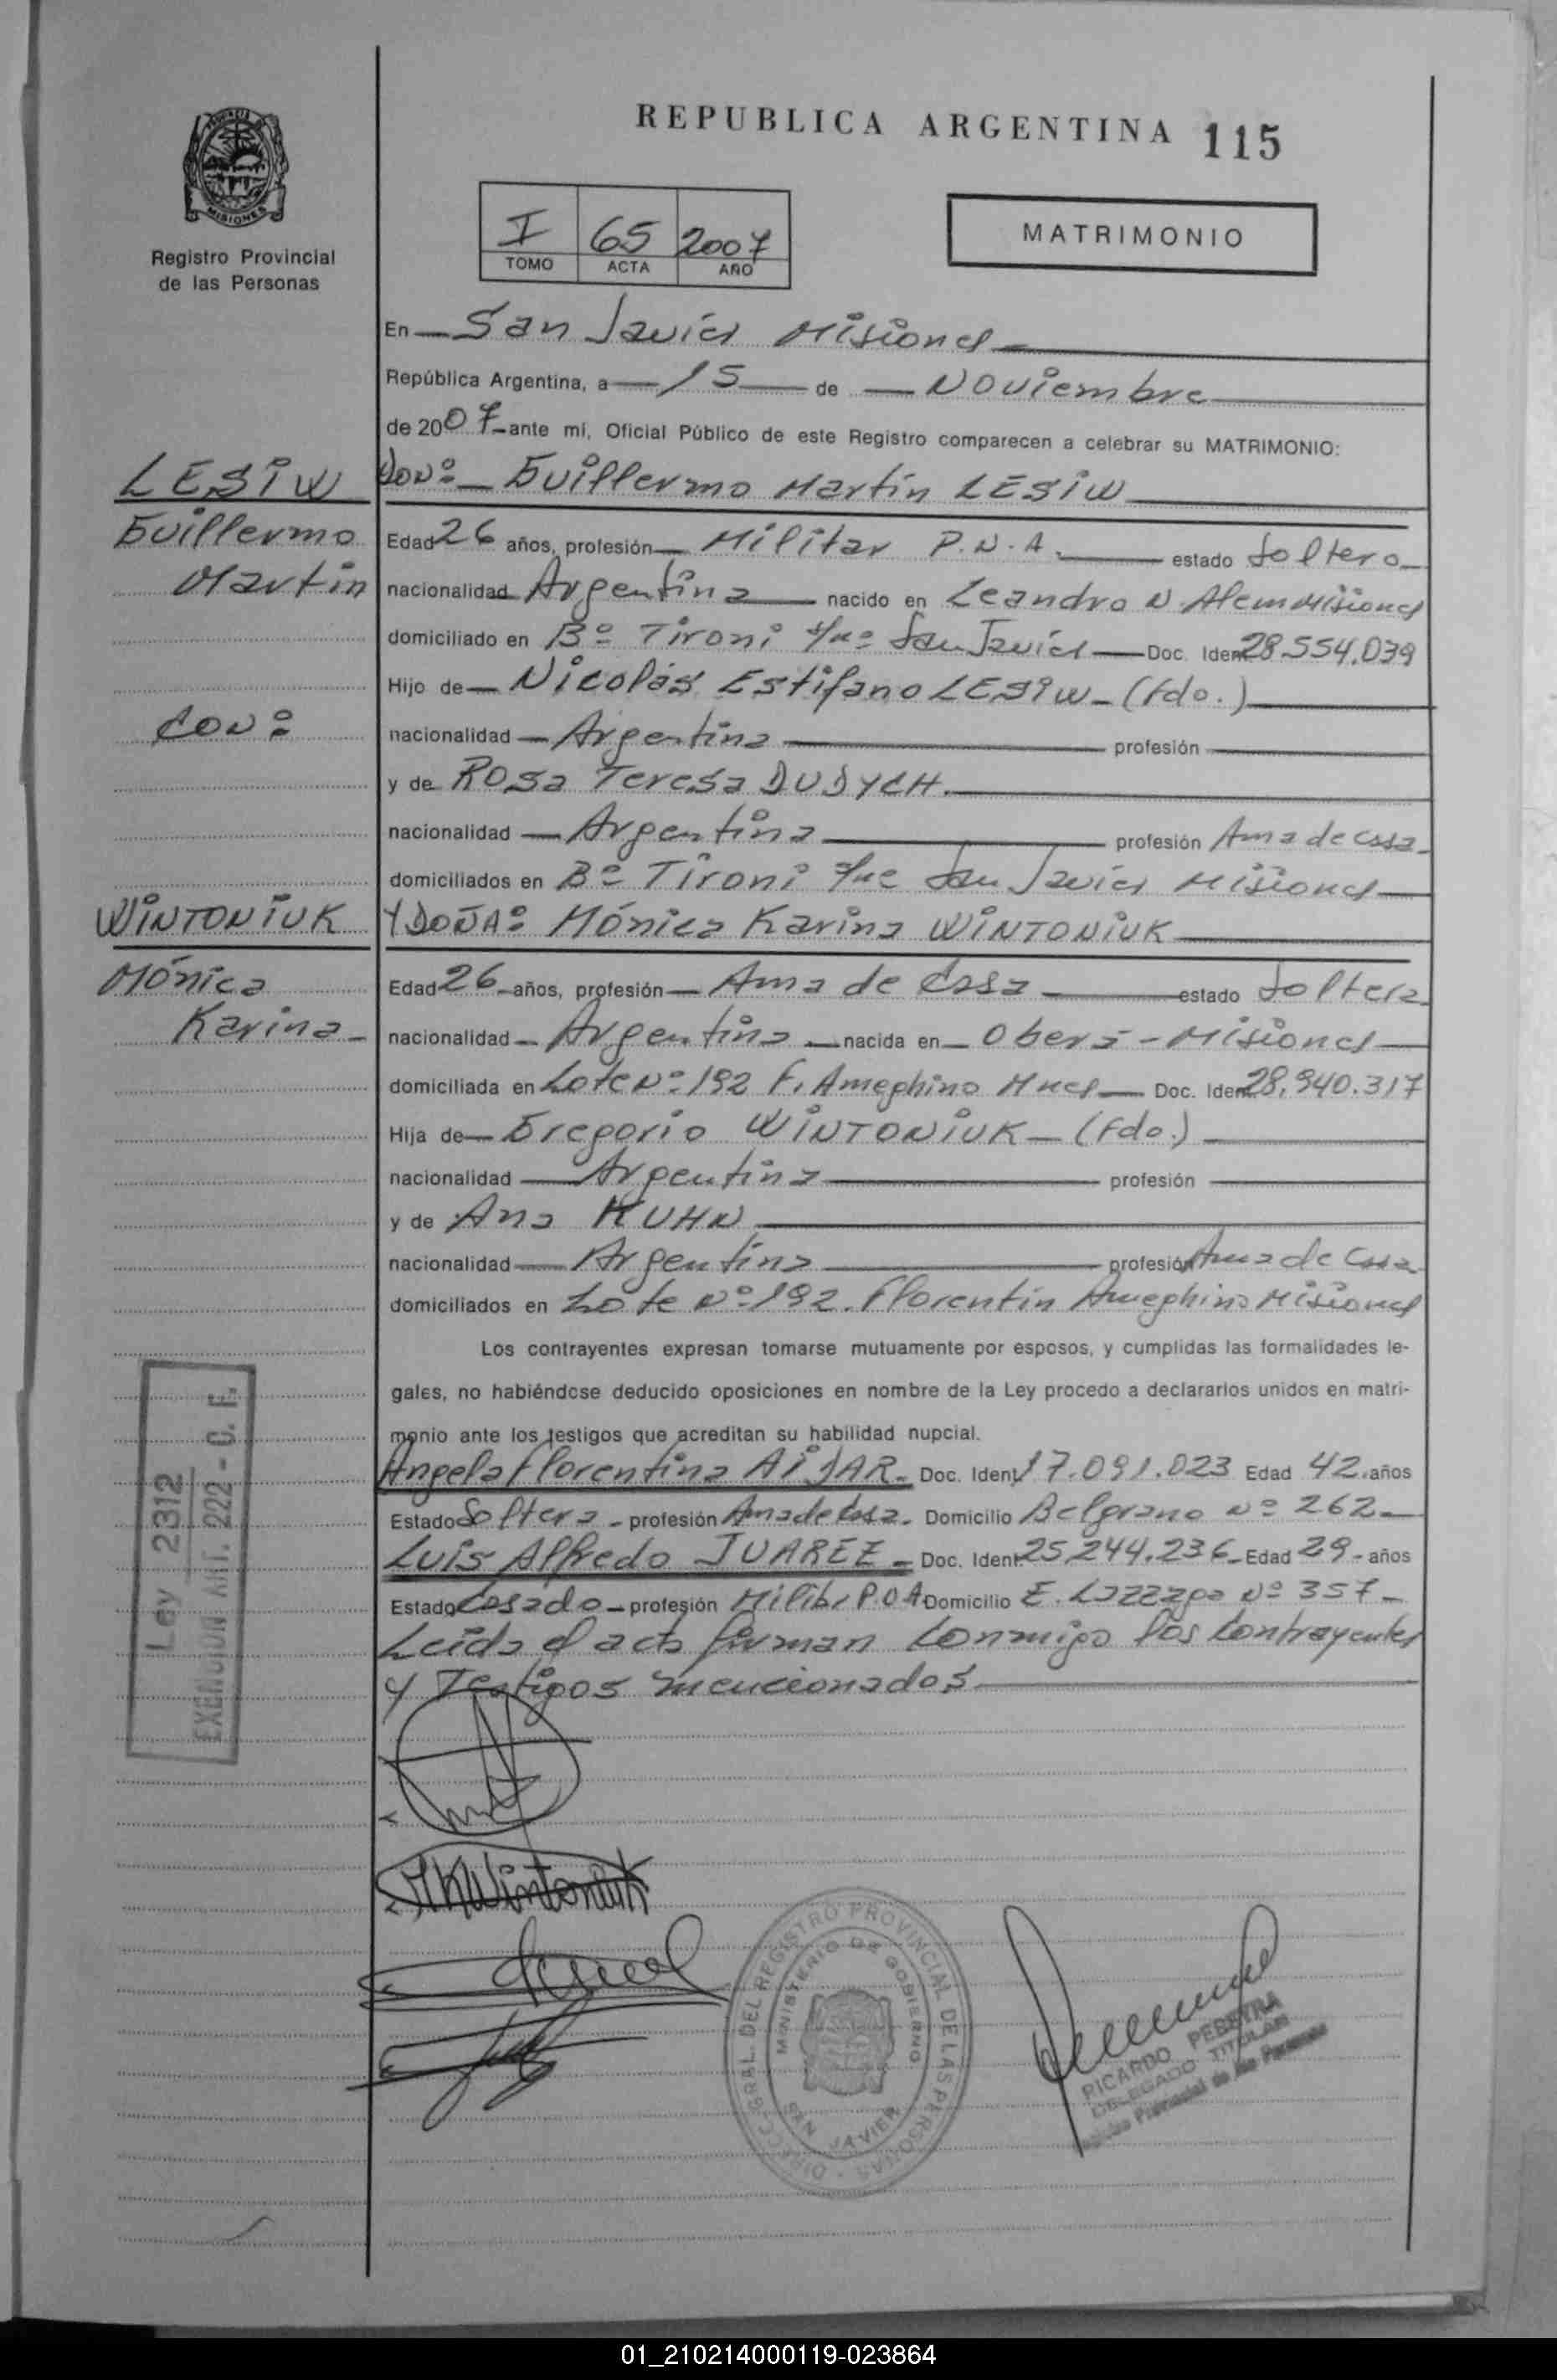 REPUBLICA ARGENTINA 115
MISIONES
Registro Provincial
de las Personas
I 65 2007
TOMO ACTA AÑO
MATRIMONIO
En San Javier Misiones
República Argentina, a 15 de Noviembre
de 2007 ante mí, Oficial Público de este Registro comparecen a celebrar su MATRIMONIO:
LESIW
DON: Guillermo Martín LESIW
Guillermo
Martin
Edad 26 años, profesión Militar P.N.A. estado Soltero
nacionalidad Argentina nacido en Leandro N. Alem Misiones
domiciliado en Bº Tironi s/nº San Javier Doc. Ident 28.554.039
Hijo de Nicolás Estifano LESIW - (fdo.)
CON:
nacionalidad Argentina profesión
y de Rosa Teresa DUDYCH.
nacionalidad Argentina profesión Ama de casa
domiciliados en Bº Tironi San Javier Misiones
WINTONIUK
Y DOÑA: Mónica Karina WINTONIUK
Mónica
Karina
Edad 26 años, profesión Ama de Casa estado Soltera
nacionalidad Argentina nacida en Oberá - Misiones
domiciliada en Lote Nº 192 F. Ameghino Mnes Doc. Ident 28.940.317
Hija de Gregorio WINTONIUK - (Fdo.)
nacionalidad Argentina profesión
y de Ana KUHN
nacionalidad Argentina profesión Ama de Casa
domiciliados en Lote Nº 192. Florentín Ameghino Misiones
Los contrayentes expresan tomarse mutuamente por esposos, y cumplidas las formalidades le-
gales, no habiéndose deducido oposiciones en nombre de la Ley procedo a declararlos unidos en matri-
monio ante los testigos que acreditan su habilidad nupcial.
Angela Florentina AIJAR. Doc. Ident 17.091.023 Edad 42 años
Estado Soltera - profesión Ama de Casa. Domicilio Belgrano Nº 262
Luis Alfredo JUAREZ - Doc. Ident 25.244.236 - Edad 29 - años
Estado Casado - profesión Domicilio Nº 357
Leida el acta firman Conmigo los Contrayentes
y Testigos mencionados
Ley 2312
EXENCION ART. 222 - C. F.
MKWintoniuk
DIRECC. GRAL. DEL REGISTRO PROVINCIAL DE LAS PERSONAS
MINISTERIO DE GOBIERNO
SAN JAVIER
RICARDO PEREYRA
DELEGADO TITULAR
Registro Provincial de las Personas
01_210214000119-023864